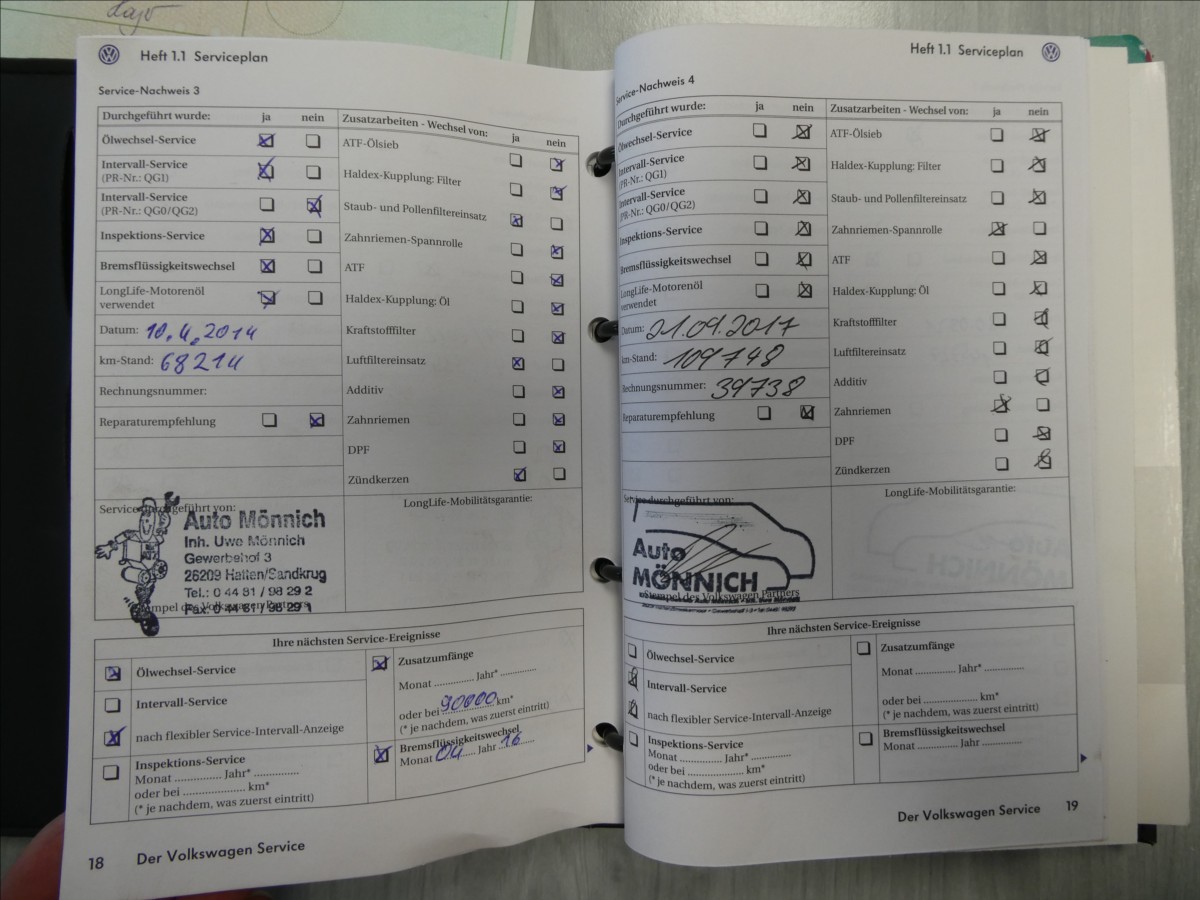 Heft 1.1 Serviceplan
Service-Nachweis 3
Durchgeführt wurde: ja nein
Ölwechsel-Service
Intervall-Service
(PR-Nr.: QG1)
Intervall-Service
(PR-Nr.: QG0/QG2)
Inspektions-Service
Bremsflüssigkeitswechsel
LongLife-Motorenöl
verwendet
Datum: 10.4.2014
km-Stand: 68214
Rechnungsnummer:
Reparaturempfehlung
Zusatzarbeiten - Wechsel von: ja nein
ATF-Ölsieb
Haldex-Kupplung: Filter
Staub- und Pollenfiltereinsatz
Zahnriemen-Spannrolle
ATF
Haldex-Kupplung: Öl
Kraftstofffilter
Luftfiltereinsatz
Additiv
Zahnriemen
DPF
Zündkerzen
Service durchgeführt von:
Auto Mönnich
Inh. Uwe Mönnich
Gewerbehof 3
26209 Hatten/Sandkrug
Tel.: 0 44 81 / 98 29 2
Fax: 0 44 81 / 98 29 1
Stempel des Volkswagen Partners
LongLife-Mobilitätsgarantie:
Ihre nächsten Service-Ereignisse
Ölwechsel-Service
Intervall-Service
nach flexibler Service-Intervall-Anzeige
Inspektions-Service
Monat ............... Jahr* ...............
oder bei .................... km*
(* je nachdem, was zuerst eintritt)
Zusatzumfänge
Monat ............. Jahr* ...............
oder bei 90000 km*
(* je nachdem, was zuerst eintritt)
Bremsflüssigkeitswechsel
Monat 04 Jahr 16
18 Der Volkswagen Service
Heft 1.1 Serviceplan
Service-Nachweis 4
Durchgeführt wurde: ja nein
Ölwechsel-Service
Intervall-Service
(PR-Nr.: QG1)
Intervall-Service
(PR-Nr.: QG0/QG2)
Inspektions-Service
Bremsflüssigkeitswechsel
LongLife-Motorenöl
verwendet
Datum: 21.09.2017
km-Stand: 109748
Rechnungsnummer: 39738
Reparaturempfehlung
Zusatzarbeiten - Wechsel von: ja nein
ATF-Ölsieb
Haldex-Kupplung: Filter
Staub- und Pollenfiltereinsatz
Zahnriemen-Spannrolle
ATF
Haldex-Kupplung: Öl
Kraftstofffilter
Luftfiltereinsatz
Additiv
Zahnriemen
DPF
Zündkerzen
Service durchgeführt von:
Auto
MÖNNICH
Stempel des Volkswagen Partners
LongLife-Mobilitätsgarantie:
Ihre nächsten Service-Ereignisse
Ölwechsel-Service
Intervall-Service
nach flexibler Service-Intervall-Anzeige
Inspektions-Service
Monat .............. Jahr* ...............
oder bei .................... km*
(* je nachdem, was zuerst eintritt)
Zusatzumfänge
Monat ............. Jahr* ..............
oder bei .................... km*
(* je nachdem, was zuerst eintritt)
Bremsflüssigkeitswechsel
Monat ............. Jahr ..............
Der Volkswagen Service 19